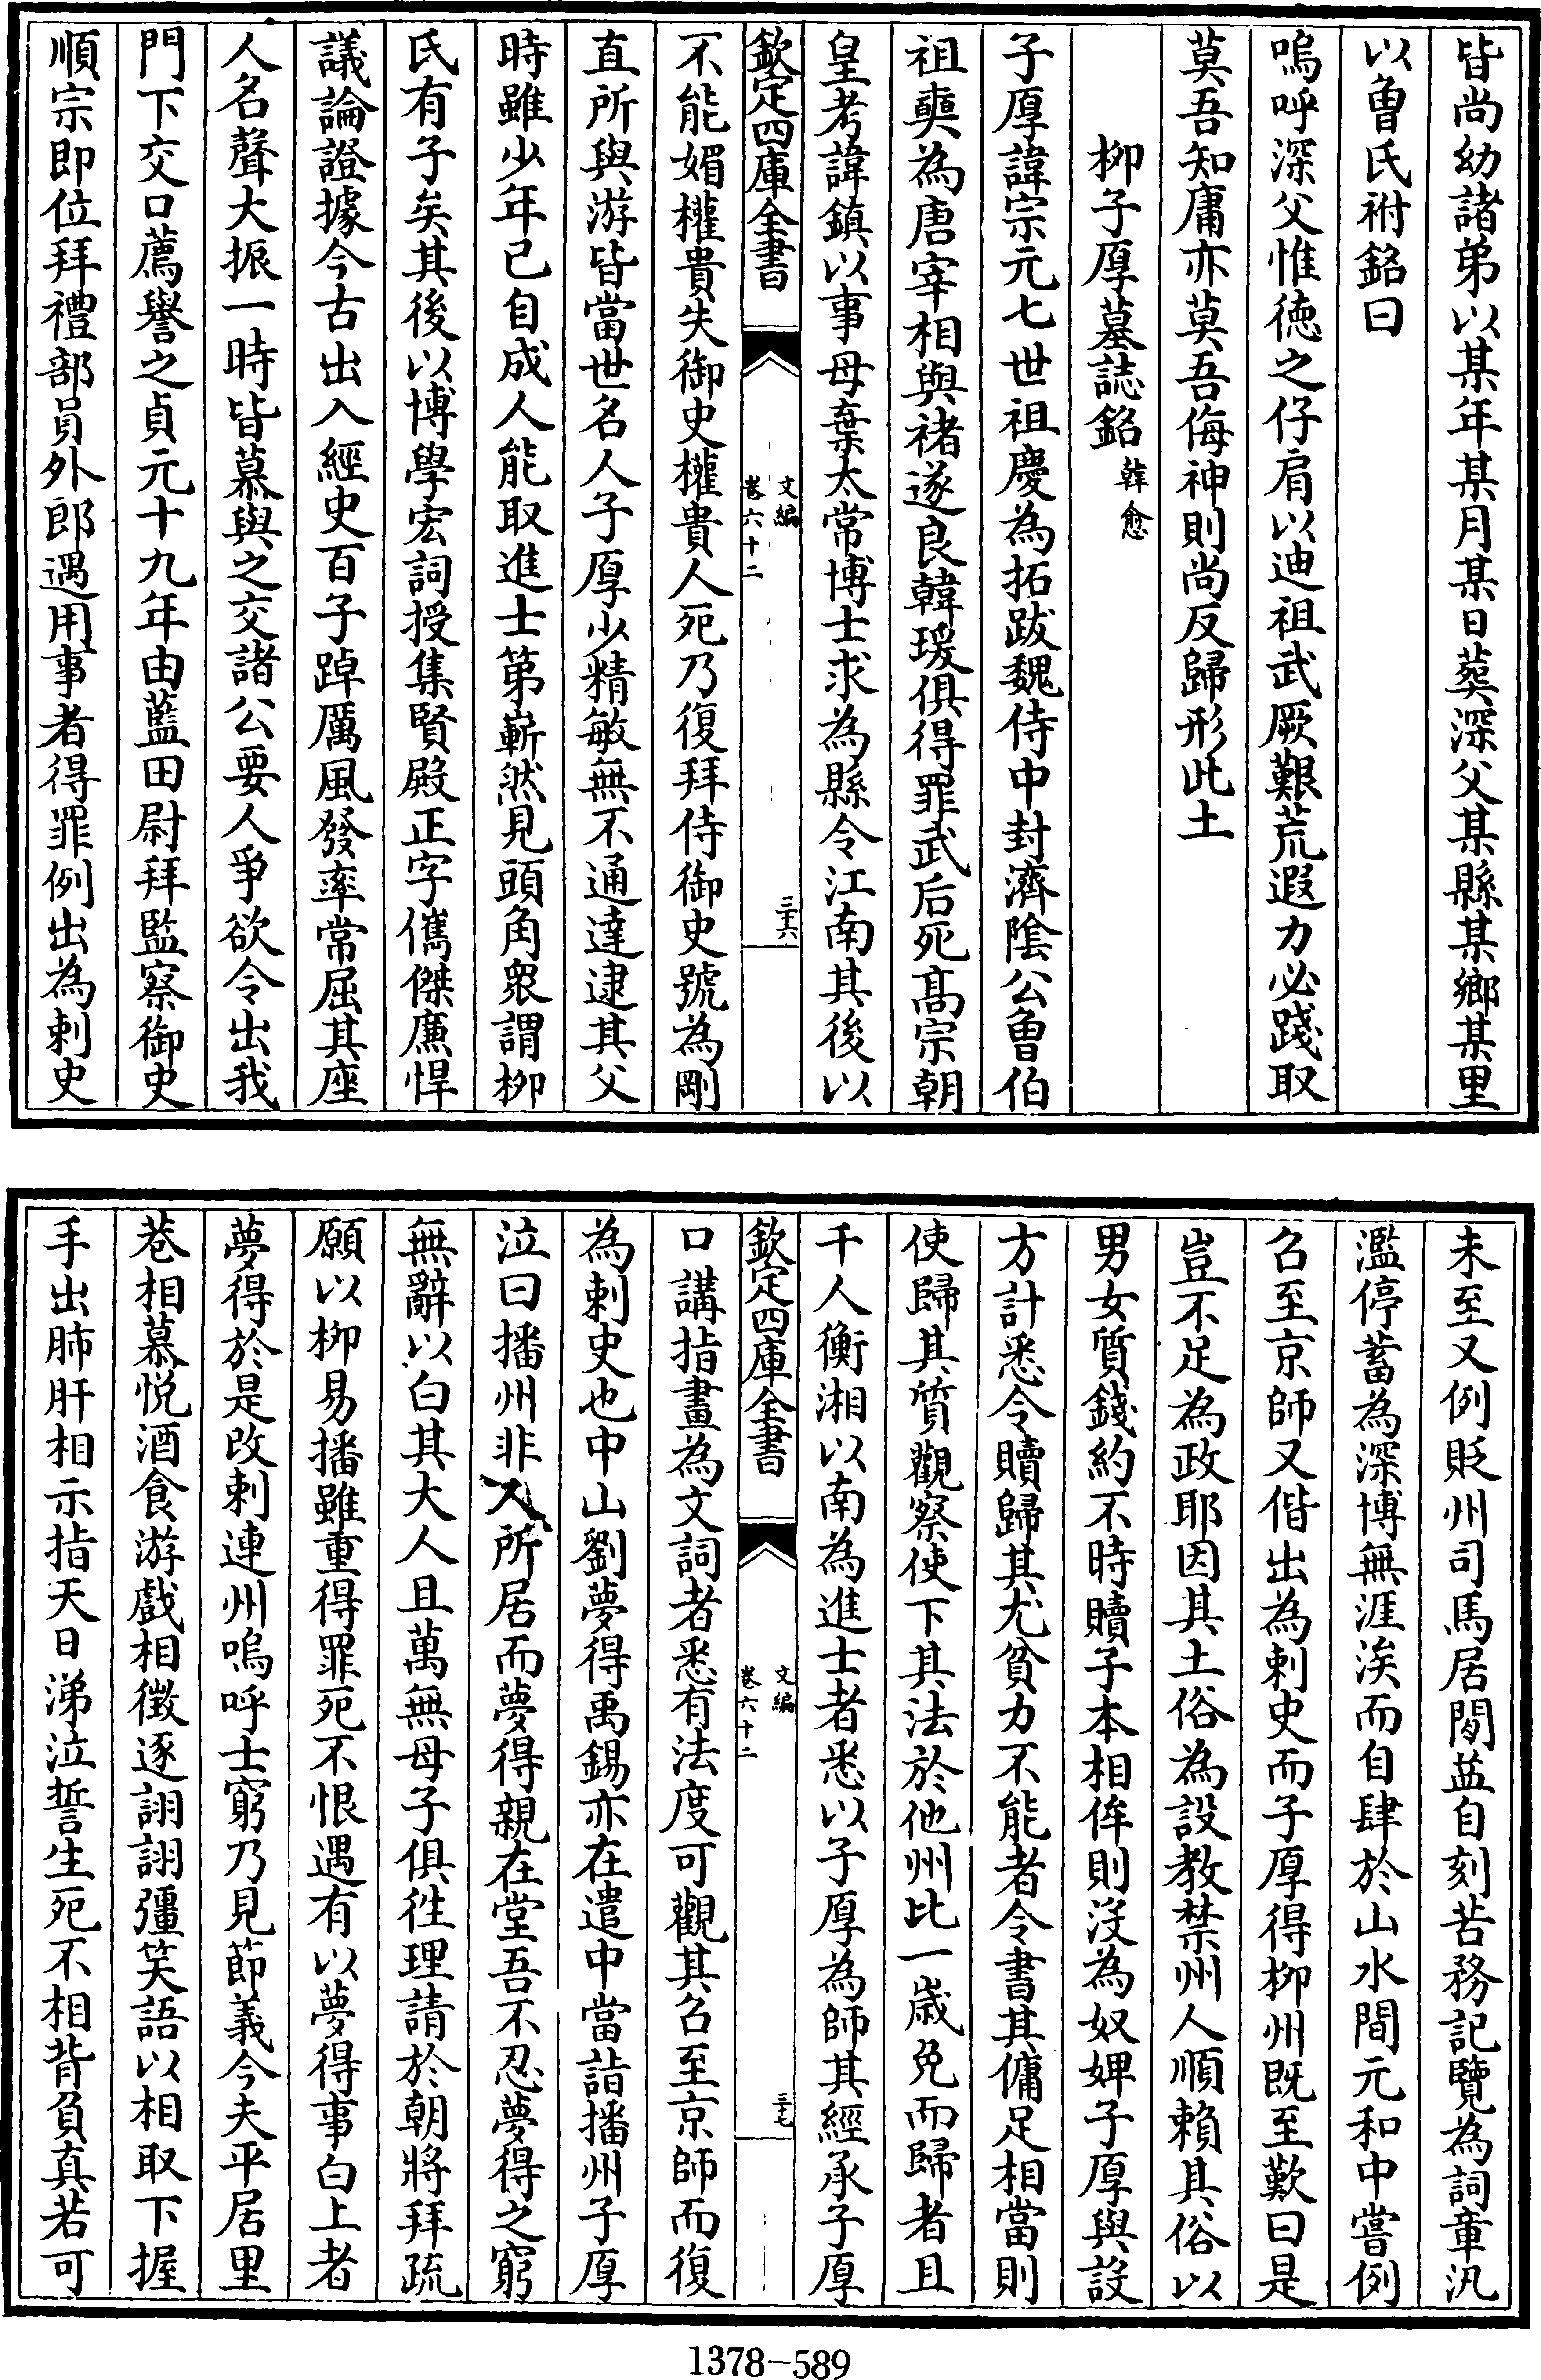 皆尚幼諸弟以某年某月某日葬深父某縣某鄉某里
以曾氏祔銘曰
嗚呼深父惟德之仔肩以迪祖武厥艱荒遐力必踐取
莫吾知庸亦莫吾侮神則尚反歸形此土
柳子厚墓誌銘 韓愈
子厚諱宗元七世祖慶為拓跋魏侍中封濟陰公曾伯
祖奭為唐宰相與褚遂良韓瑗俱得罪武后死高宗朝
皇考諱鎮以事母棄太常博士求為縣令江南其後以
欽定四庫全書 文編 卷六十二 三十六
不能媚權貴失御史權貴人死乃復拜侍御史號為剛
直所與游皆當世名人子厚少精敏無不通達逮其父
時雖少年已自成人能取進士第嶄然見頭角衆謂柳
氏有子矣其後以博學宏詞授集賢殿正字儁傑廉悍
議論證據今古出入經史百子踔厲風發率常屈其座
人名聲大振一時皆慕與之交諸公要人爭欲令出我
門下交口薦譽之貞元十九年由藍田尉拜監察御史
順宗即位拜禮部員外郎遇用事者得罪例出為刺史
未至又例貶州司馬居閒益自刻苦務記覽為詞章汎
濫停蓄為深博無涯涘而自肆於山水間元和中嘗例
召至京師又偕出為刺史而子厚得柳州既至歎曰是
豈不足為政耶因其土俗為設教禁州人順賴其俗以
男女質錢約不時贖子本相侔則沒為奴婢子厚與設
方計悉令贖歸其尤貧力不能者令書其傭足相當則
使歸其質觀察使下其法於他州比一歲免而歸者且
千人衡湘以南為進士者悉以子厚為師其經承子厚
欽定四庫全書 文編 卷六十二 三十七
口講指畫為文詞者悉有法度可觀其召至京師而復
為刺史也中山劉夢得禹錫亦在遣中當詣播州子厚
泣曰播州非人所居而夢得親在堂吾不忍夢得之窮
無辭以白其大人且萬無母子俱往理請於朝將拜疏
願以柳易播雖重得罪死不恨遇有以夢得事白上者
夢得於是改刺連州嗚呼士窮乃見節義今夫平居里
巷相慕悅酒食游戲相徵逐詡詡彊笑語以相取下握
手出肺肝相示指天日涕泣誓生死不相背負真若可
1378-589